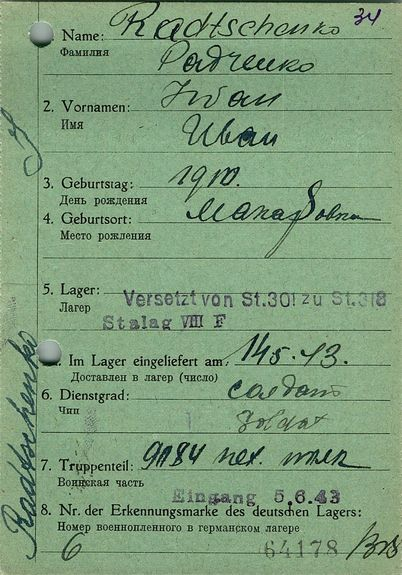 34
1. Name: Radtschenko
Фамилия Радченко
2. Vornamen: Iwan
Имя Иван
3. Geburtstag: 1910.
День рождения
4. Geburtsort: Макаровка
Место рождения
5. Lager: Versetzt von St.301 zu St.318
Лагерь Stalag VIII F
Im Lager eingeliefert am: 14.5.43.
Доставлен в лагерь (число)
6. Dienstgrad: солдат
Чин Soldat
7. Truppenteil: 9184 пех. полк
Воинская часть
Eingang 5.6.43
8. Nr. der Erkennungsmarke des deutschen Lagers:
Номер военнопленного в германском лагере
6 64178
Radtschenko